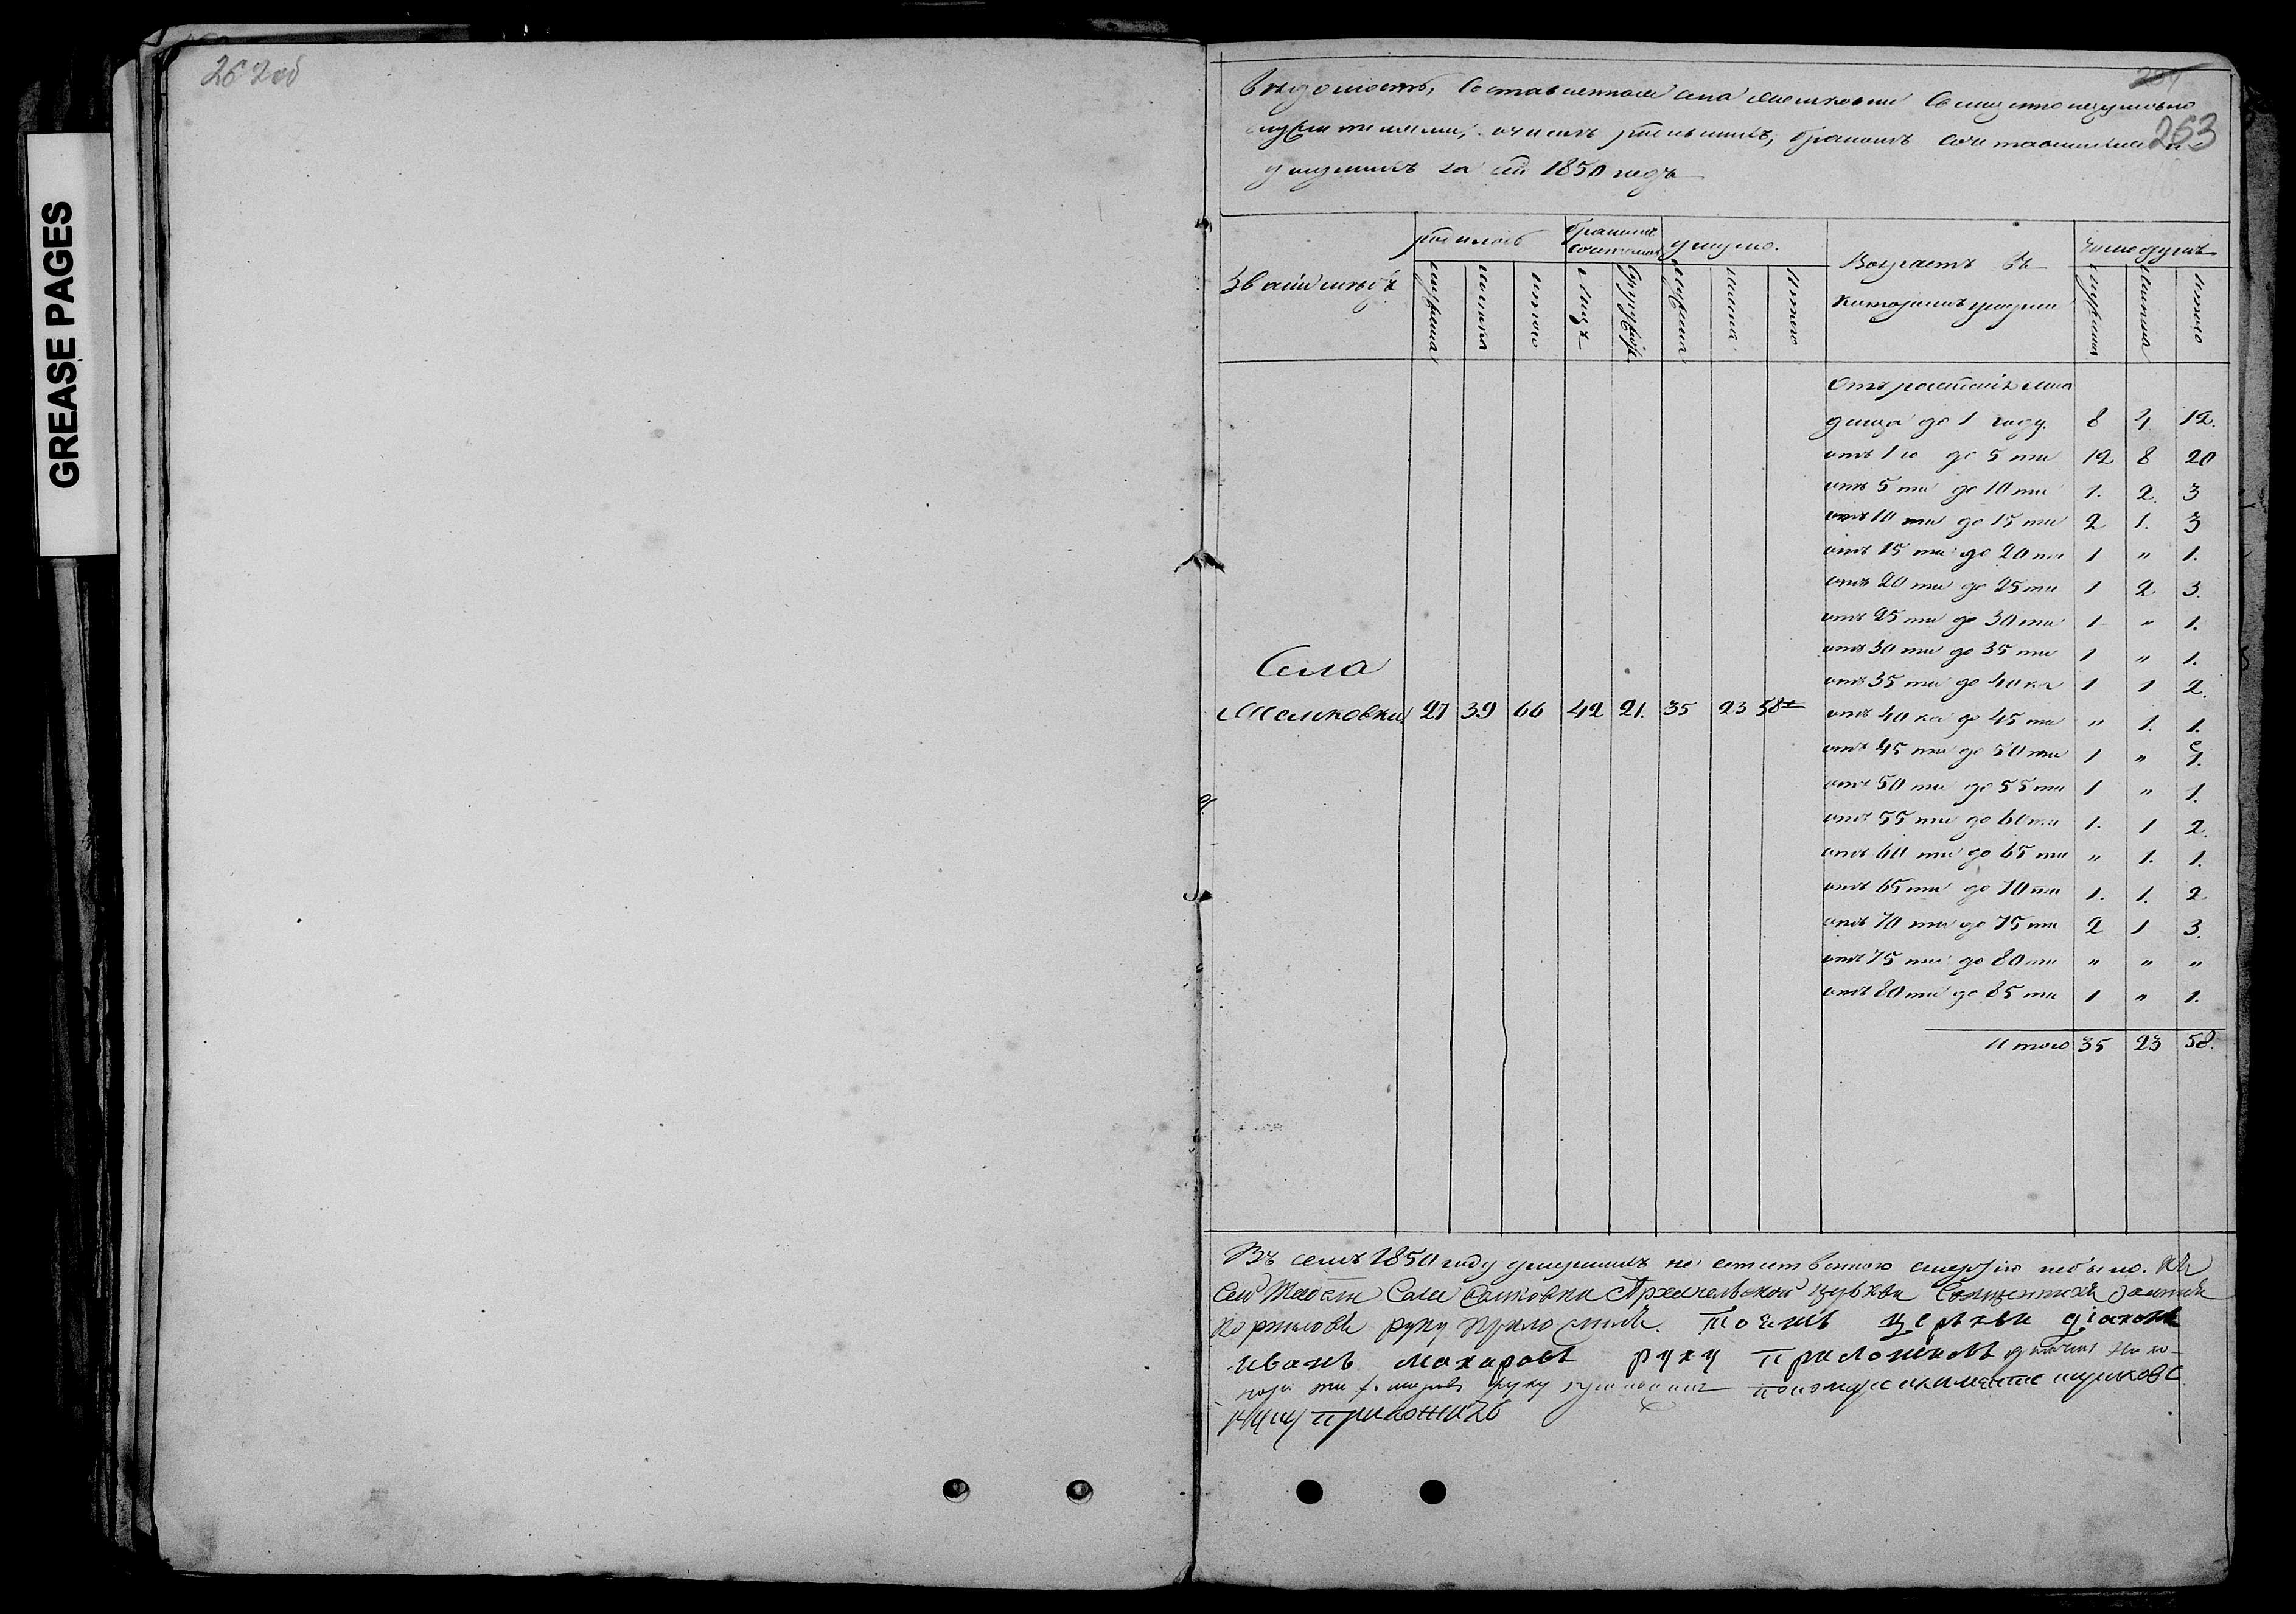 262об
GREASE PAGES
264
263
Ведомость, Составленная села Священноцерковно
служителями, о числе родившихся, браком сочетавшихся и
умерших за сей 1850 годъ
Звание мѣстъ
родилось
браком сочеталось
умерло.
Возрастъ въ
которомъ умерли
Число душъ
мужеска
женска
итого
Лицъ
Супружес
мужеска
женска
Итого
мужеска
женска
Итого
Отъ рожденія мла
денца до 1 году. 8 4 12.
отъ 1го до 5 ти 12 8 20
отъ 5 ти до 10 ти 1. 2. 3
отъ 10 ти до 15 ти 2 1. 3
отъ 15 ти до 20 ти 1 " 1.
отъ 20 ти до 25 ти 1 2 3.
отъ 25 ти до 30 ти 1 " 1.
отъ 30 ти до 35 ти 1 " 1.
Села
отъ 35 ти до 40 ка 1 1 2.
27 39 66 42 21. 35 23 58
отъ 40 ка до 45 ти " 1. 1.
отъ 45 ти до 50 ти 1 " 1.
отъ 50 ти до 55 ти 1 " 1.
отъ 55 ти до 60 ти 1. 1 2.
отъ 60 ти до 65 ти " 1. 1.
отъ 65 ти до 70 ти 1. 1. 2
отъ 70 ти до 75 ти 2 1 3.
отъ 75 ти до 80 ти " " "
отъ 80 ти до 85 ти 1 " 1.
Итого 35 23 58.
Въ семъ 1850 году умершихъ не естественною смертію небыло. Къ
сей Села Архангельской церкви Священникъ
руку приложилъ. Тоежъ церкви діаконъ
иванъ макаровъ руку приложилъ
руку пономарь
руку приложилъ